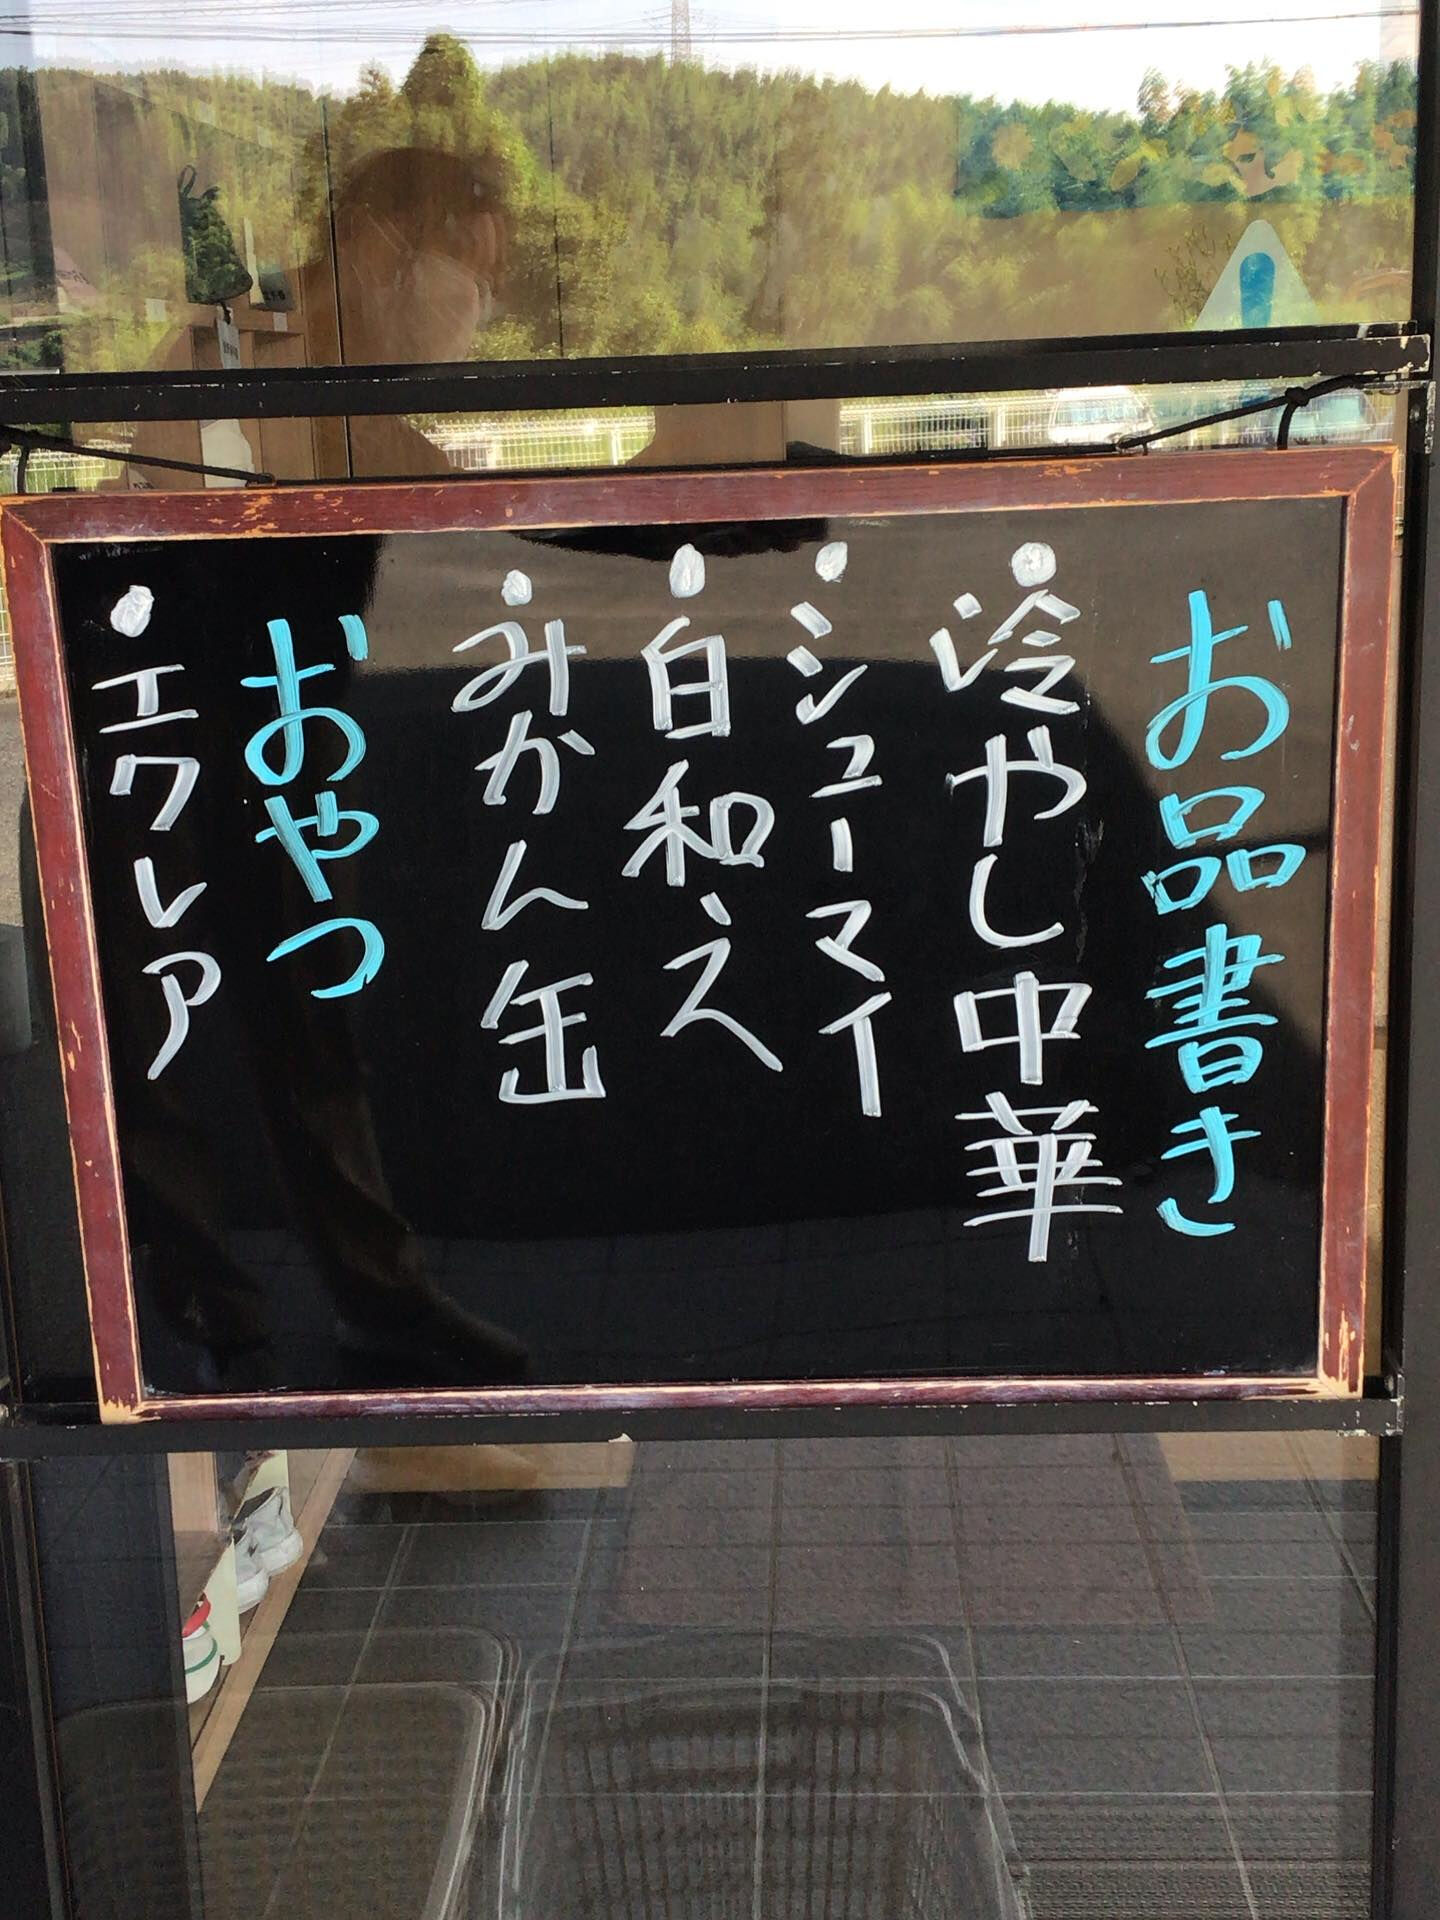 お品書き
・冷やし中華
・シューマイ
・白和え
・みかん缶
おやつ
・エクレア